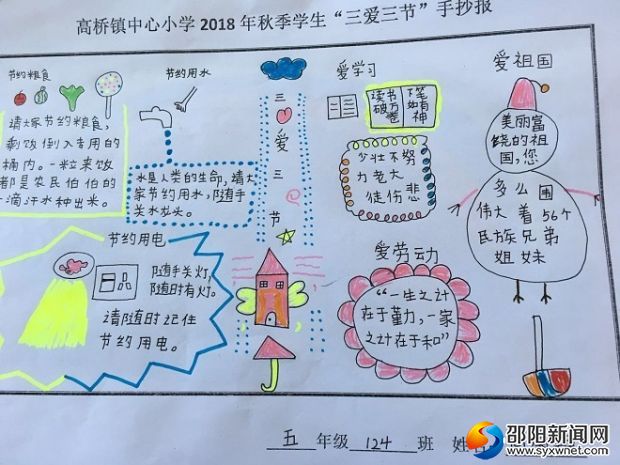 高桥镇中心小学 2018 年秋季学生“三爱三节”手抄报
节约粮食
请大家节约粮食，
剩饭倒入专用的
桶内。一粒米饭
都是农民伯伯的
一滴汗水种出米。
节约用水
水是人类的生命，请大
家节约用水，随手
关水龙头。
三
爱
三
节
爱学习
读书
破万卷
下笔
如有神
少壮不努
力老大
徒伤悲
爱祖国
美丽富
饶的祖
国，您
多么
伟大 着56个
民族兄弟
姐妹
节约用电
随手关灯，
随时有灯。
请随时记住
节约用电。
爱劳动
“一生之计
在于勤力，一家
之计在于和”
五 年级 124 班 姓
邵阳新闻网
www.syxwnet.com